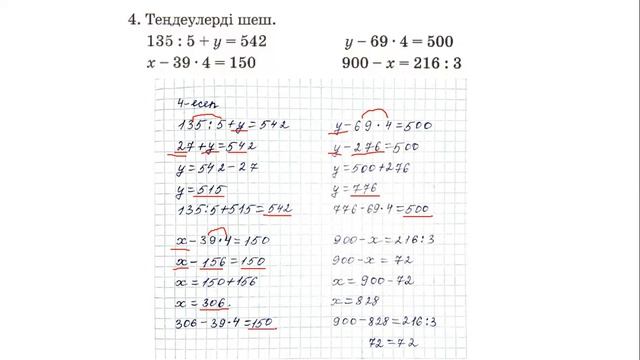 4. Теңдеулерді шеш.
135 : 5 + y = 542
y − 69 · 4 = 500
x − 39 · 4 = 150
900 − x = 216 : 3
4-есеп
135:5+y=542
27+y=542
y=542−27
y=515
135:5+515=542
y−69·4=500
y−276=500
y=500+276
y=776
776-69·4=500
x−39·4=150
x−156=150
x=150+156
x=306.
306−39·4=150
900−x=216:3
900−x=72
x=900−72
x=828
900−828=216:3
72=72